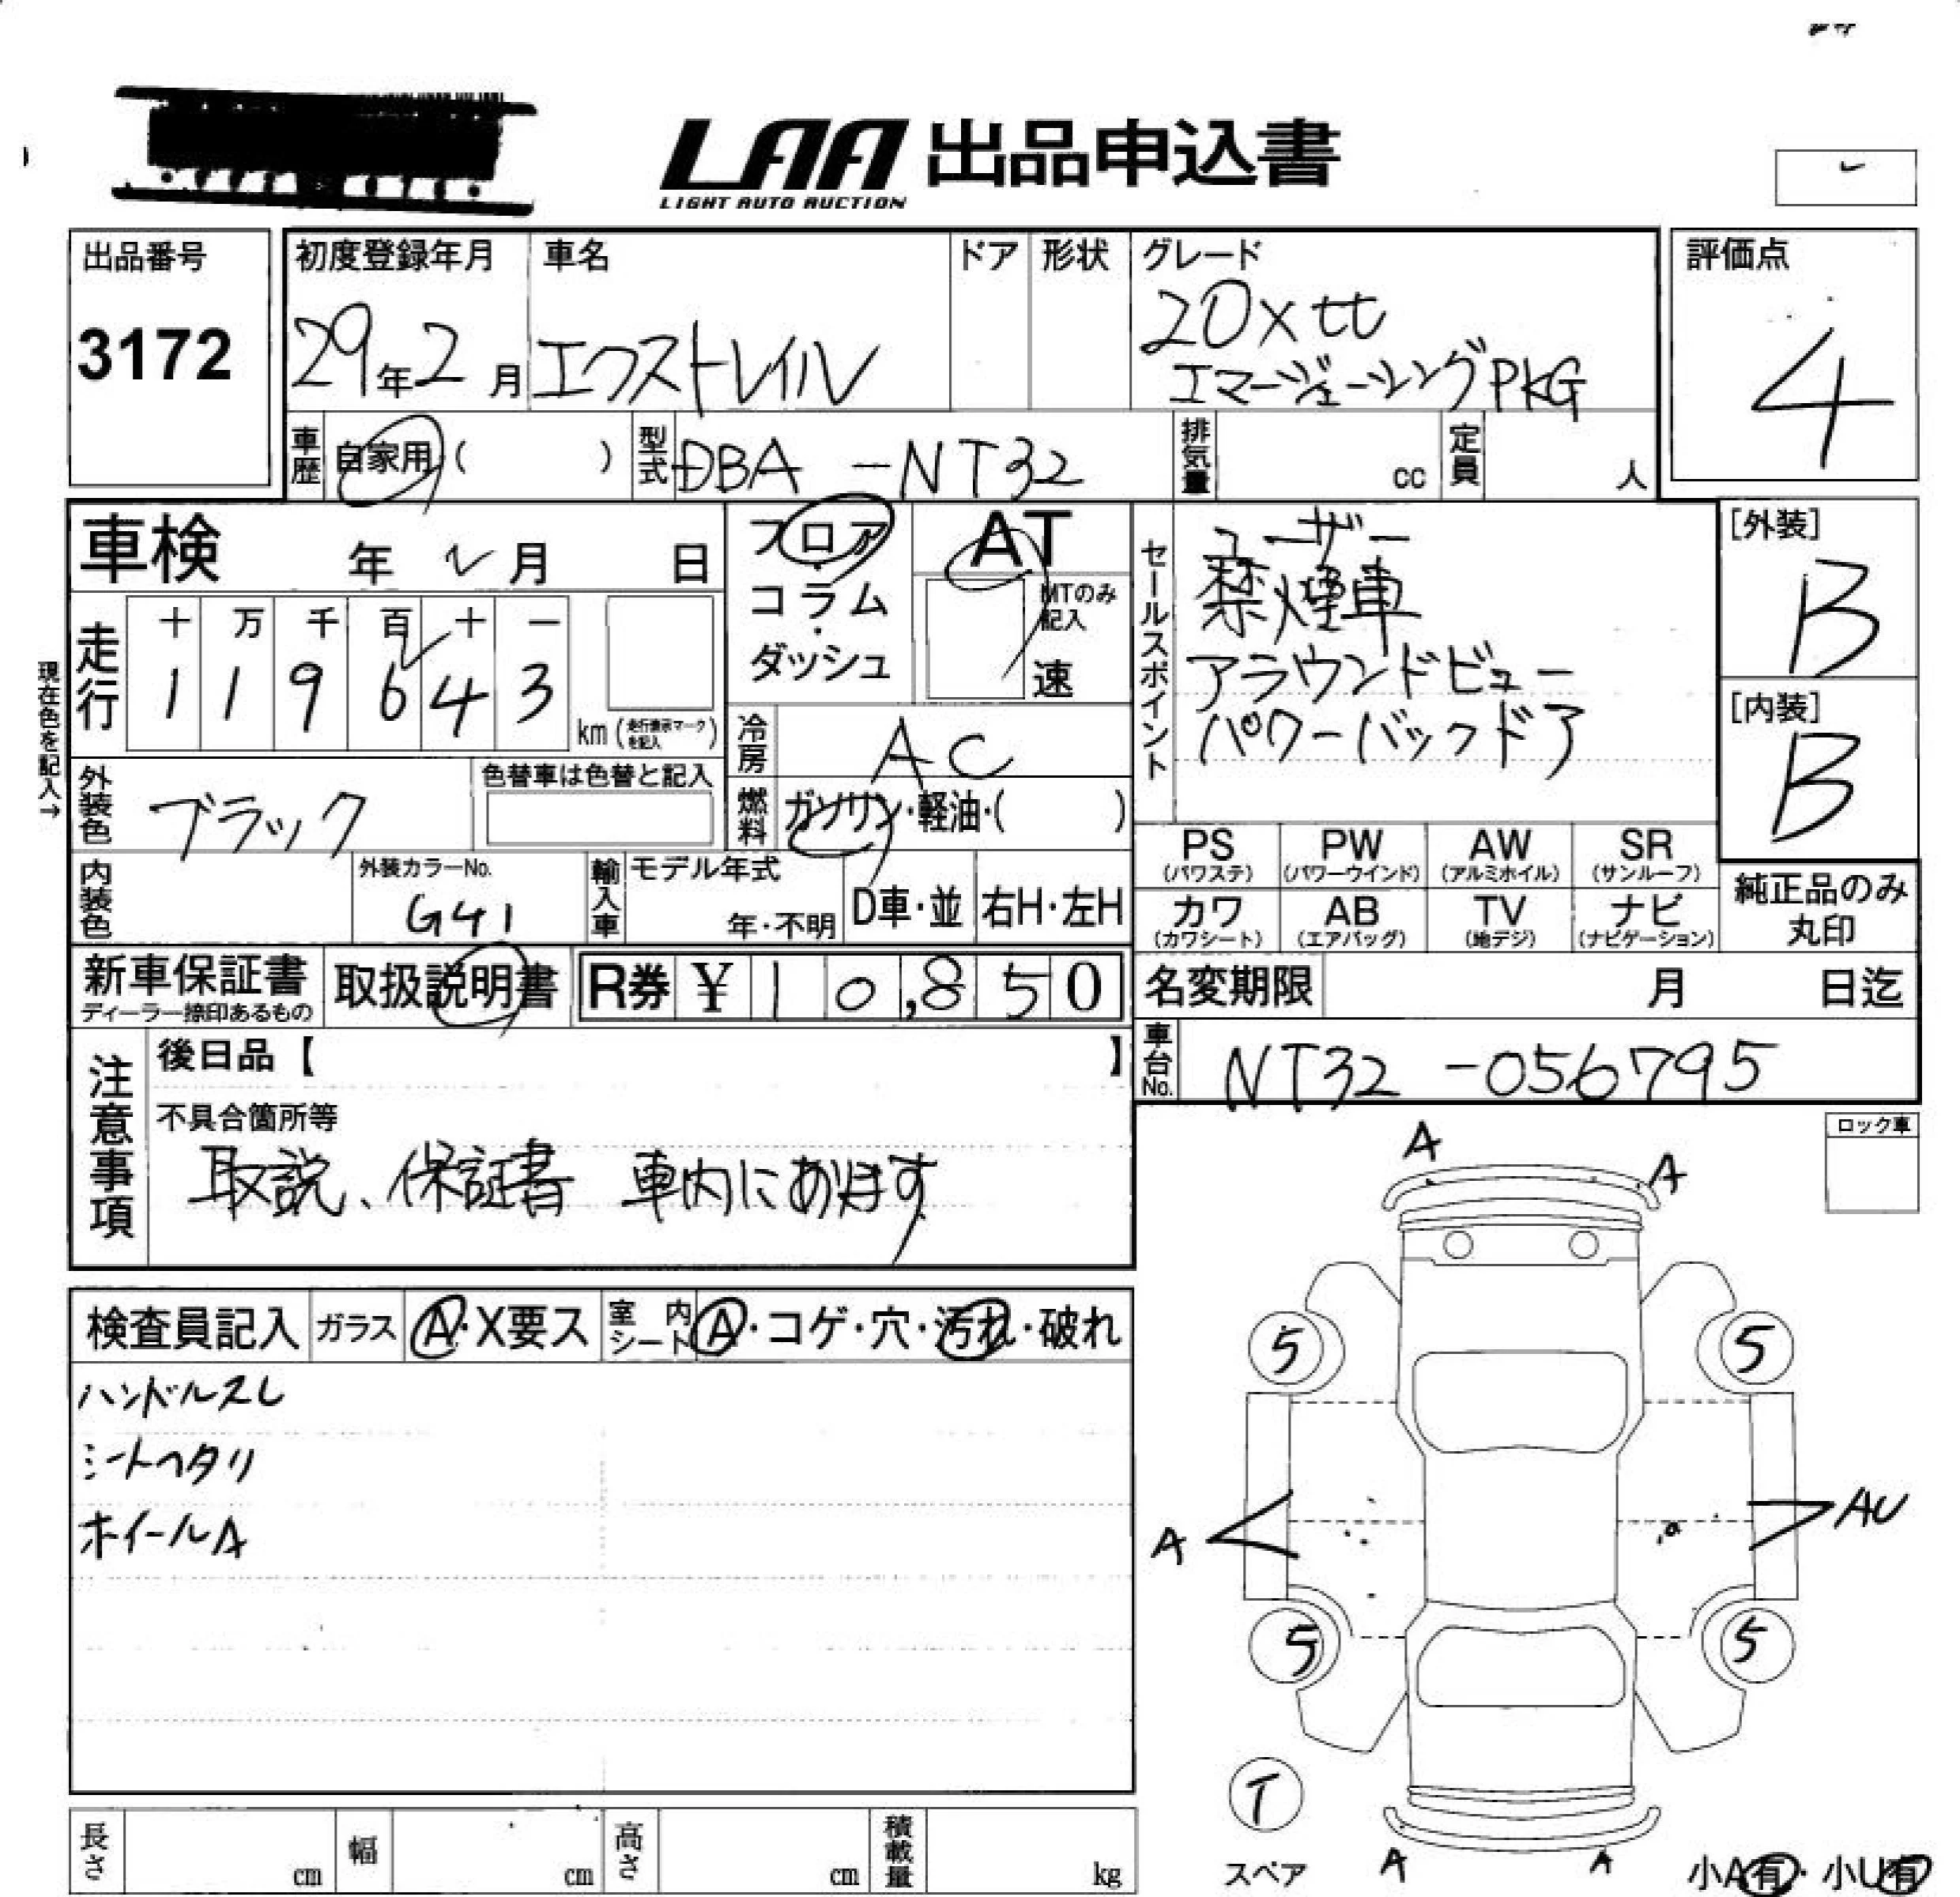 LAA 出品申込書
LIGHT AUTO AUCTION
出品番号
3172
初度登録年月
29年2月
車名
エクストレイル
ドア
形状
グレード
20Xtt
エマージェーシングPKG
評価点
4
車歴
自家用( )
型式
DBA -NT32
排気量
cc
定員
人
車検 年 2月 日
フロア・コラム・ダッシュ
AT
MTのみ記入
速
セールスポイント
ユーザー
禁煙車
アラウンドビュー
パワーバックドア
[外装]
B
[内装]
B
現在色を記入→
走行
十 万 千 百 十 一
1 1 9 6 4 3
km(走行表示マークを記入)
冷房
AC
外装色
ブラック
色替車は色替と記入
燃料
ガソリン・軽油・( )
PS
(パワステ)
PW
(パワーウインド)
AW
(アルミホイル)
SR
(サンルーフ)
内装色
外装カラーNo.
G41
輸入車
モデル年式
年・不明
D車・並
右H・左H
カワ
(カワシート)
AB
(エアバッグ)
TV
(地デジ)
ナビ
(ナビゲーション)
純正品のみ
丸印
新車保証書
ディーラー捺印あるもの
取扱説明書
R券 ¥ 10,850
名変期限 月 日迄
車台No.
NT32 -056795
注意事項
後日品【 】
不具合箇所等
取説、保証書 車内にあります
ロック車
A
A
検査員記入
ガラス
A・X要ス
室内シート
A・コゲ・穴・汚れ・破れ
ハンドルスレ
シートヘタリ
ホイールA
5
5
A
AU
5
5
T
スペア
A
A
小A有・小U有
長さ cm
幅 cm
高さ cm
積載量 kg